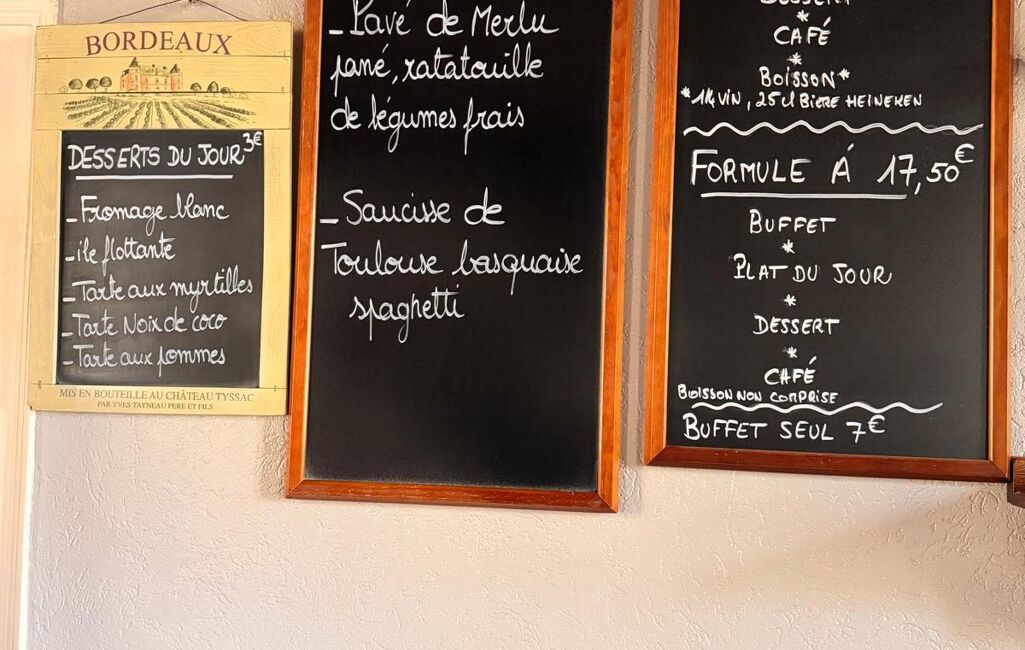 BORDEAUX
DESSERTS DU JOUR 3€
- Fromage blanc
- ile flottante
- Tarte aux myrtilles
- Tarte Noix de coco
- Tarte aux pommes
MIS EN BOUTEILLE AU CHÂTEAU TYSSAC
PAR YVES TAYNEAU PERE ET FILS
- Pavé de Merlu
pané, ratatouille
de légumes frais
- Saucisse de
Toulouse basquaise
spaghetti
DESSERT
*
CAFÉ
*
BOISSON*
*1/4 VIN, 25cl BIERE HEINEKEN
FORMULE Á 17,50€
BUFFET
*
PLAT DU JOUR
*
DESSERT
*
CAFÉ
BOISSON NON COMPRISE
BUFFET SEUL 7€